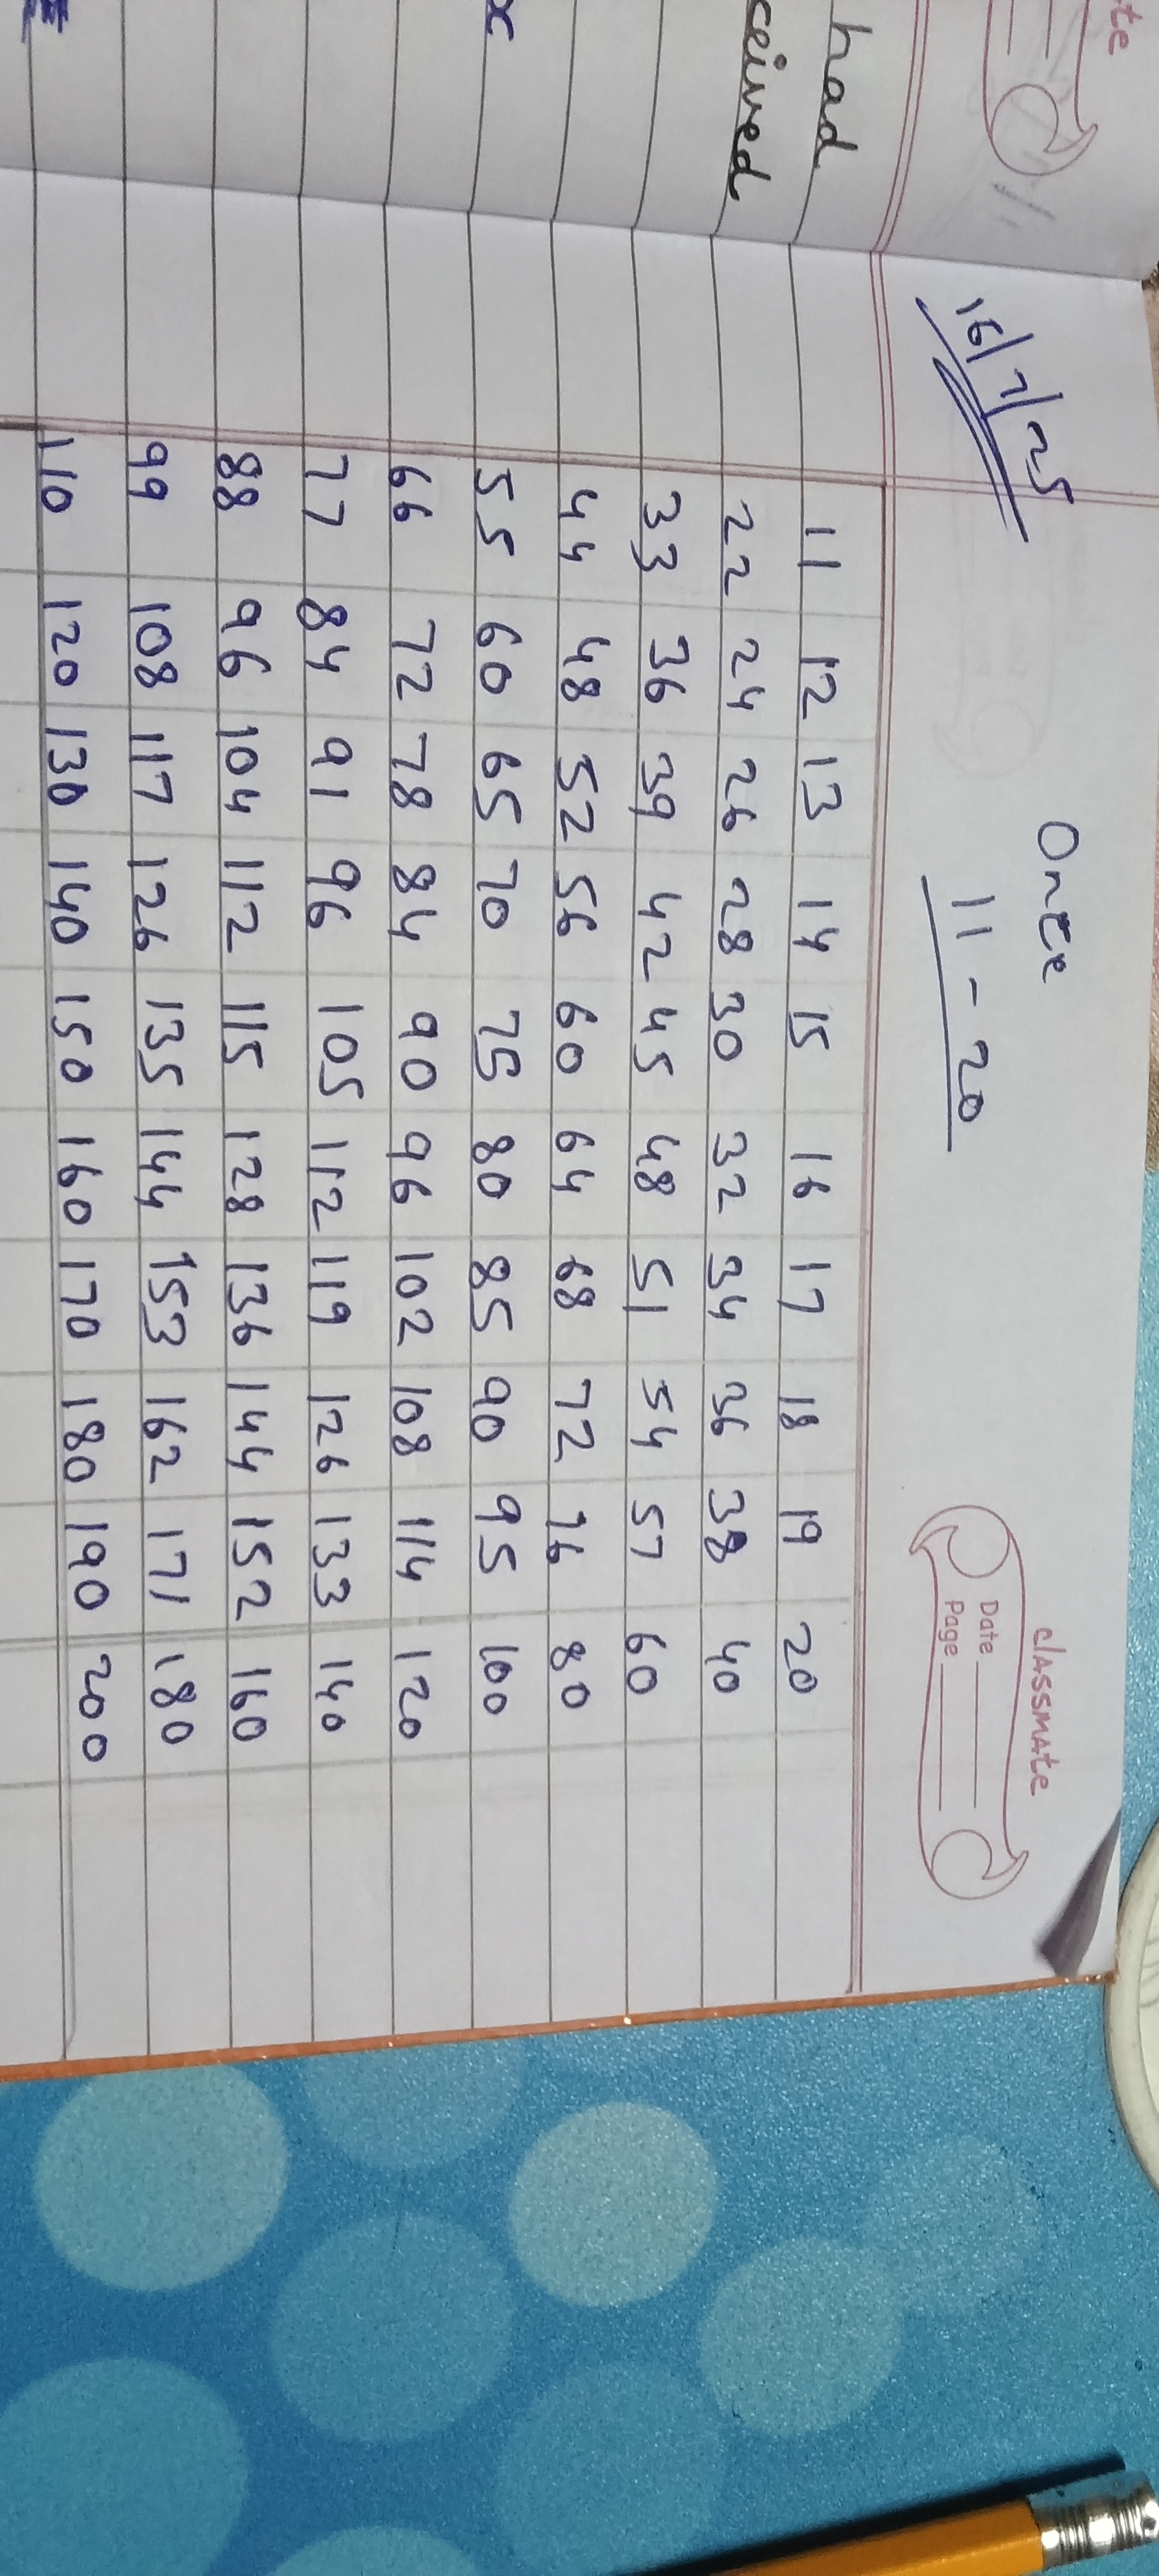 classmate
Date
Page
Once
16/7/25
11 - 20
11 12 13 14 15 16 17 18 19 20
22 24 26 28 30 32 34 36 38 40
33 36 39 42 45 48 51 54 57 60
44 48 52 56 60 64 68 72 76 80
55 60 65 70 75 80 85 90 95 100
66 72 78 84 90 96 102 108 114 120
77 84 91 96 105 112 119 126 133 140
88 96 104 112 115 128 136 144 152 160
99 108 117 126 135 144 153 162 171 180
110 120 130 140 150 160 170 180 190 200
te
had
ceived
x